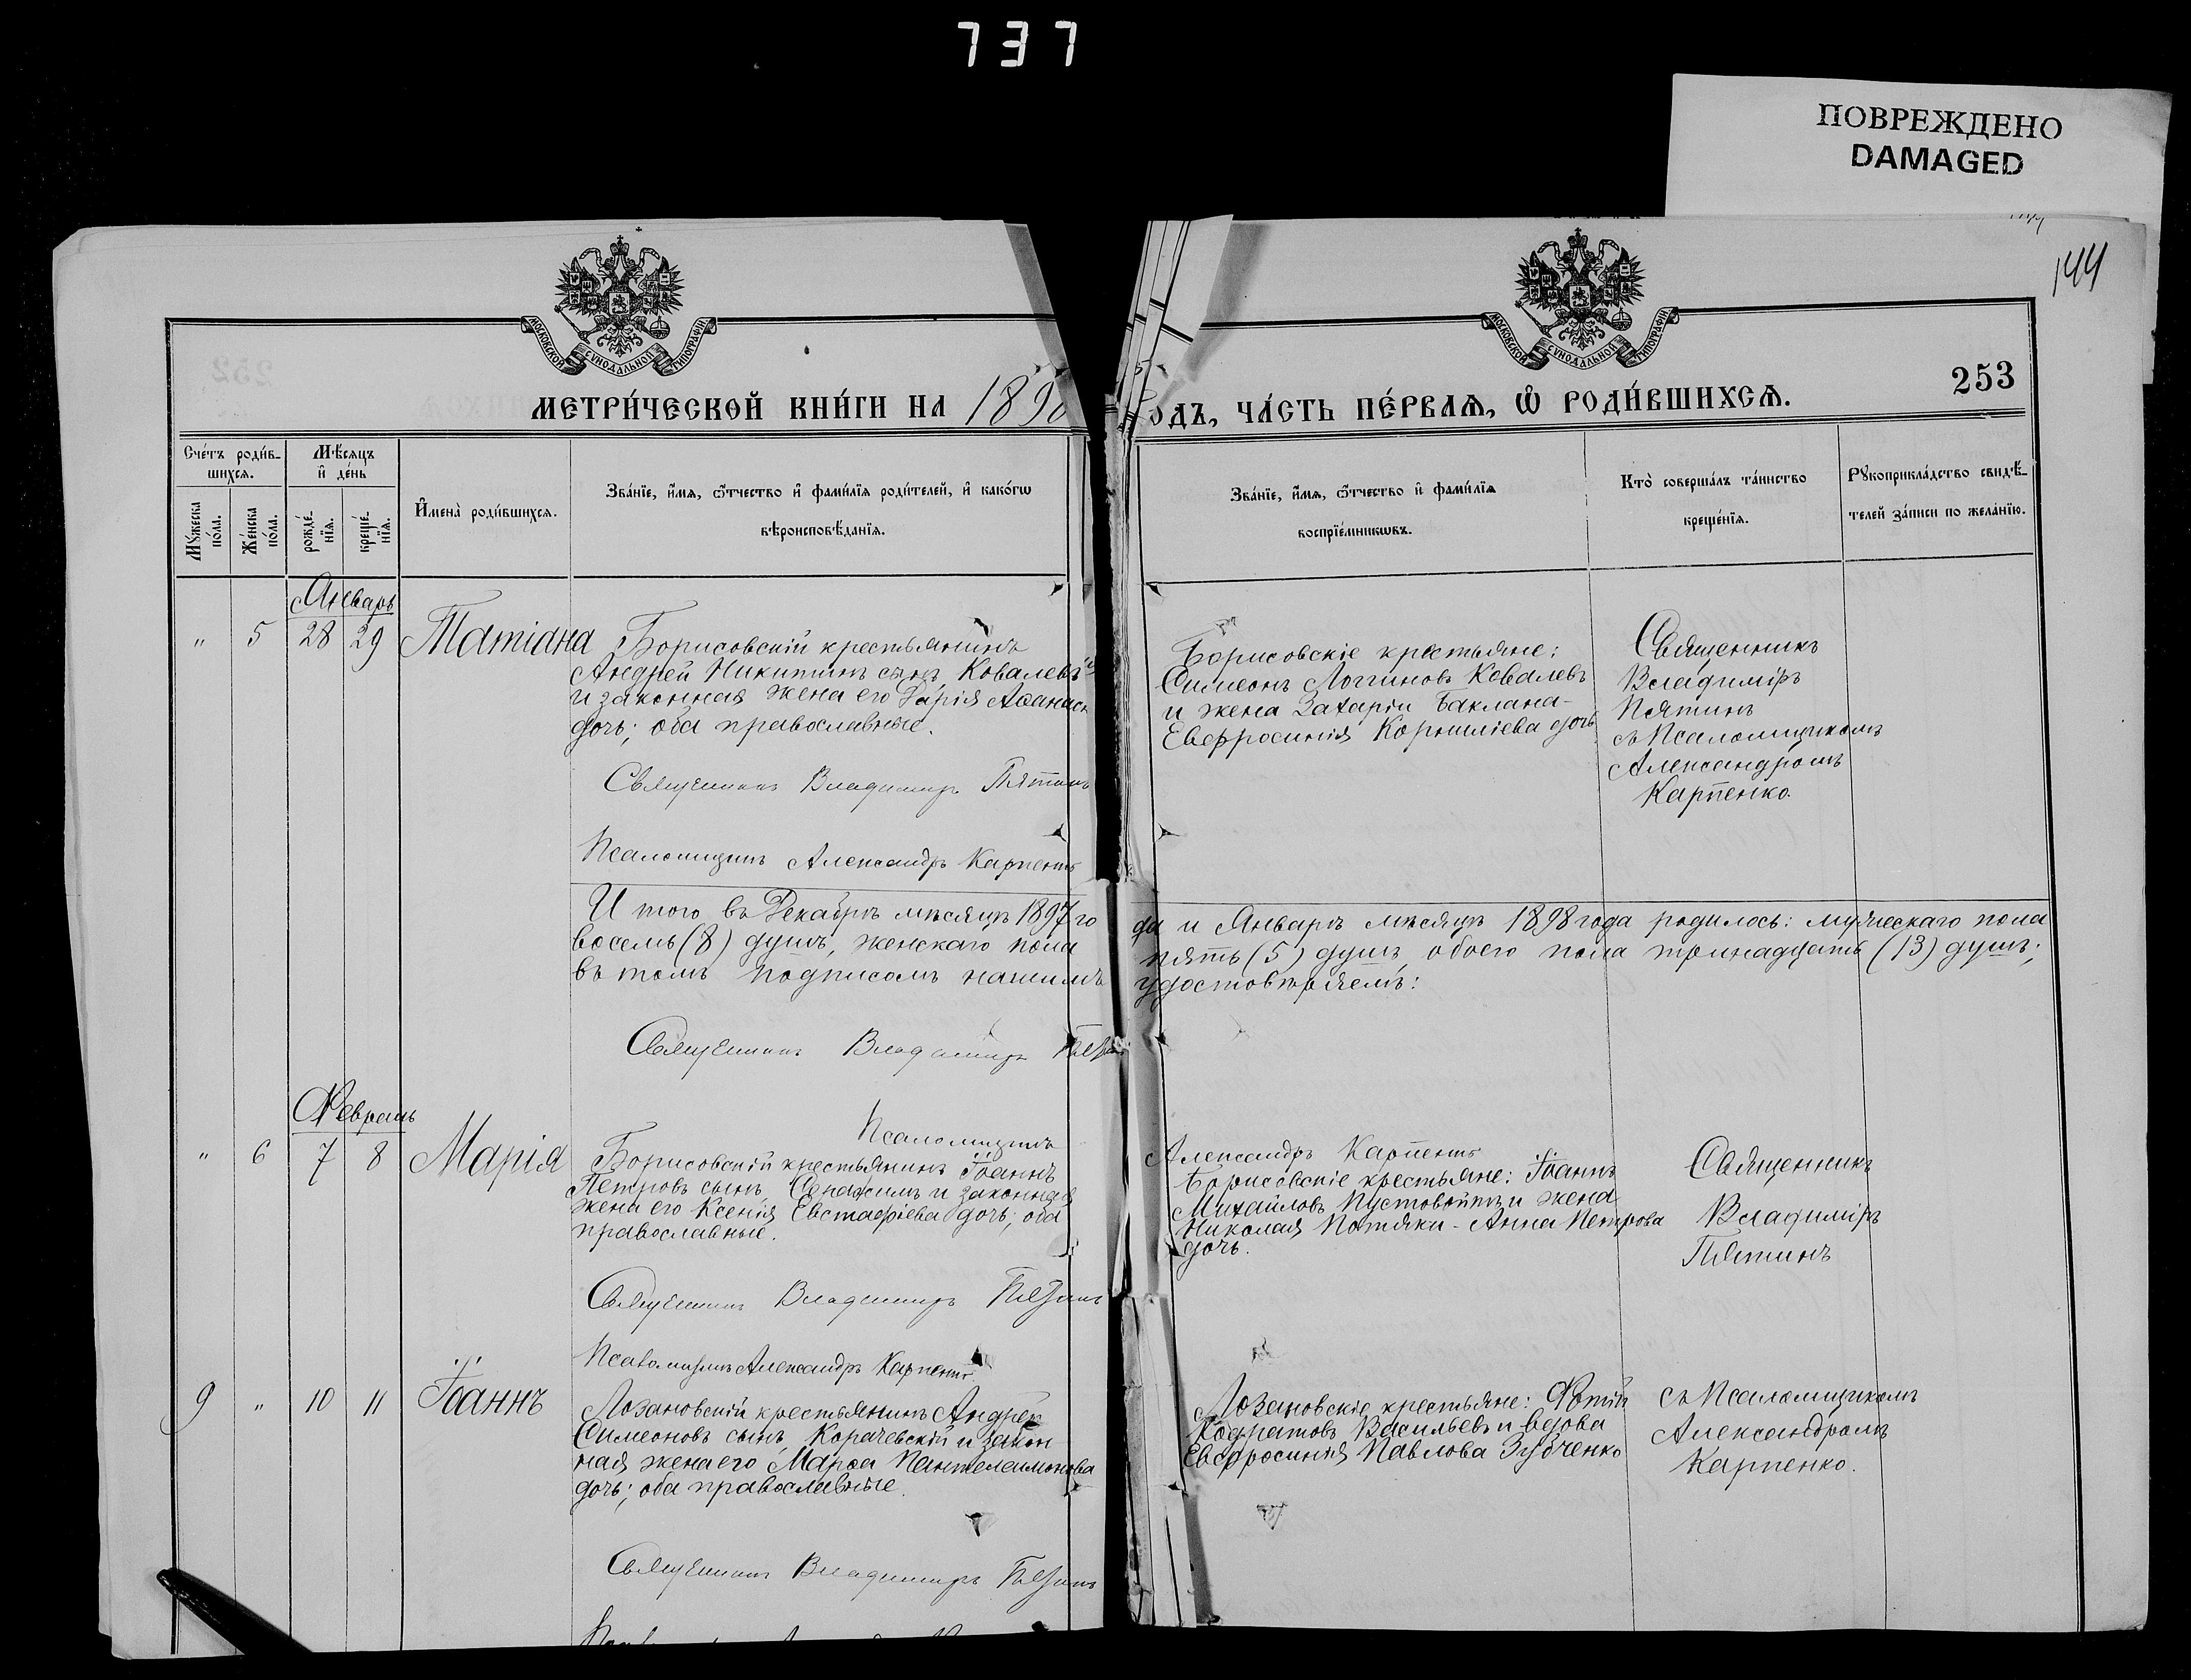 737
ПОВРЕЖДЕНО
DAMAGED
144
МОСКОВСКОЙ СѴНОДАЛЬНОЙ ТИПОГРАФІИ
МОСКОВСКОЙ СѴНОДАЛЬНОЙ ТИПОГРАФІИ
253
МЕТРИ́ЧЕСКОЙ КНИ́ГИ НА 189
ОДЪ, ЧА́СТЬ ПЕ́РВАѦ, Ѡ҆ РОДИ́ВШИХСѦ.
Сче́тъ роди́в-
шихсѧ.
Мꙋ́жеска по́ла.
Же́нска по́ла.
Мѣ́сѧцъ
и҆ де́нь
рожде́-нїѧ.
креще́-нїѧ.
И҆мена̀ роди́вшихсѧ.
Зва́нїе, и҆́мѧ, ѻ҆́тчество и҆ фами́лїѧ роди́телей, и҆ како́гѡ
вѣроисповѣ́данїѧ.
Зва́нїе, и҆́мѧ, ѻ҆́тчество и҆ фами́лїѧ
воспрїе́мникѡвъ.
Кто̀ соверша́лъ та́инство
креще́нїѧ.
Рꙋкоприкла́дство свидѣ́-
телей за́писи по жела́нїю.
Январь
" 5 28 29 Татіана
Борисовскій крестьянинъ
Андрей Никитинъ сынъ Ковалевъ
и законная жена его Дарія Аѳанас
дочь; оба православные.
Священникъ Владимиръ Пятинъ
Псаломщикъ Александръ Карпенко
Борисовскіе крестьяне:
Симеонъ Логгиновъ Ковалевъ
и жена Захаріи Баклана-
Евфросинія Корниліева дочь
Священникъ
Владиміръ
Пятинъ
съ Псаломщикомъ
Александромъ
Карпенко.
И того въ Декабрѣ мѣсяцѣ 1897 го
да и Январѣ мѣсяцѣ 1898 года родилось: мужескаго пола
восемь (8) душъ, женскаго пола
пять (5) душъ, обоего пола тринадцать (13) душъ;
въ томъ подписомъ нашимъ
удостовѣряемъ:
Священникъ Владимиръ
Псаломщикъ
Александръ Карпенко
Февраль
" 6 7 8 Марія
Борисовскій крестьянинъ Іоаннъ
Петровъ сынъ и законная
жена его Ксенія Евстафіева дочь; оба
православные.
Священникъ Владимиръ Пятинъ
Псаломщикъ Александръ Карпенко.
Борисовскіе крестьяне: Іоаннъ
Михайловъ Пустовойтъ и жена
Николая Потяки - Анна Петрова
дочь.
Священникъ
Владиміръ
Пятинъ
9 " 10 11 Іоаннъ
Лозановскій крестьянинъ Андрей
Симеоновъ сынъ Корачевскій и закон
ная жена его Марѳа Пантелеимонова
дочь; оба православные.
Священникъ Владимиръ Пятинъ
Лозановскіе крестьяне: Фотій
Кодратовъ Васильевъ и вдова
Евфросинія Павлова Зубченко
съ Псаломщикомъ
Александромъ
Карпенко.